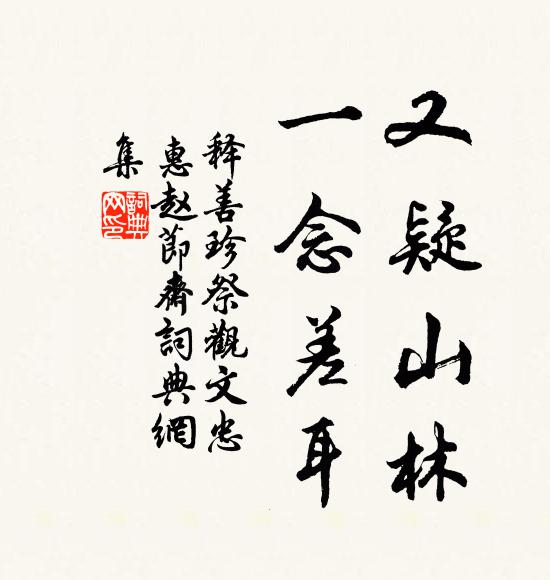 又疑山林
一念差耳
释善珍祭觀文忠
惠赵節齋詞典網
集
詞典
网印